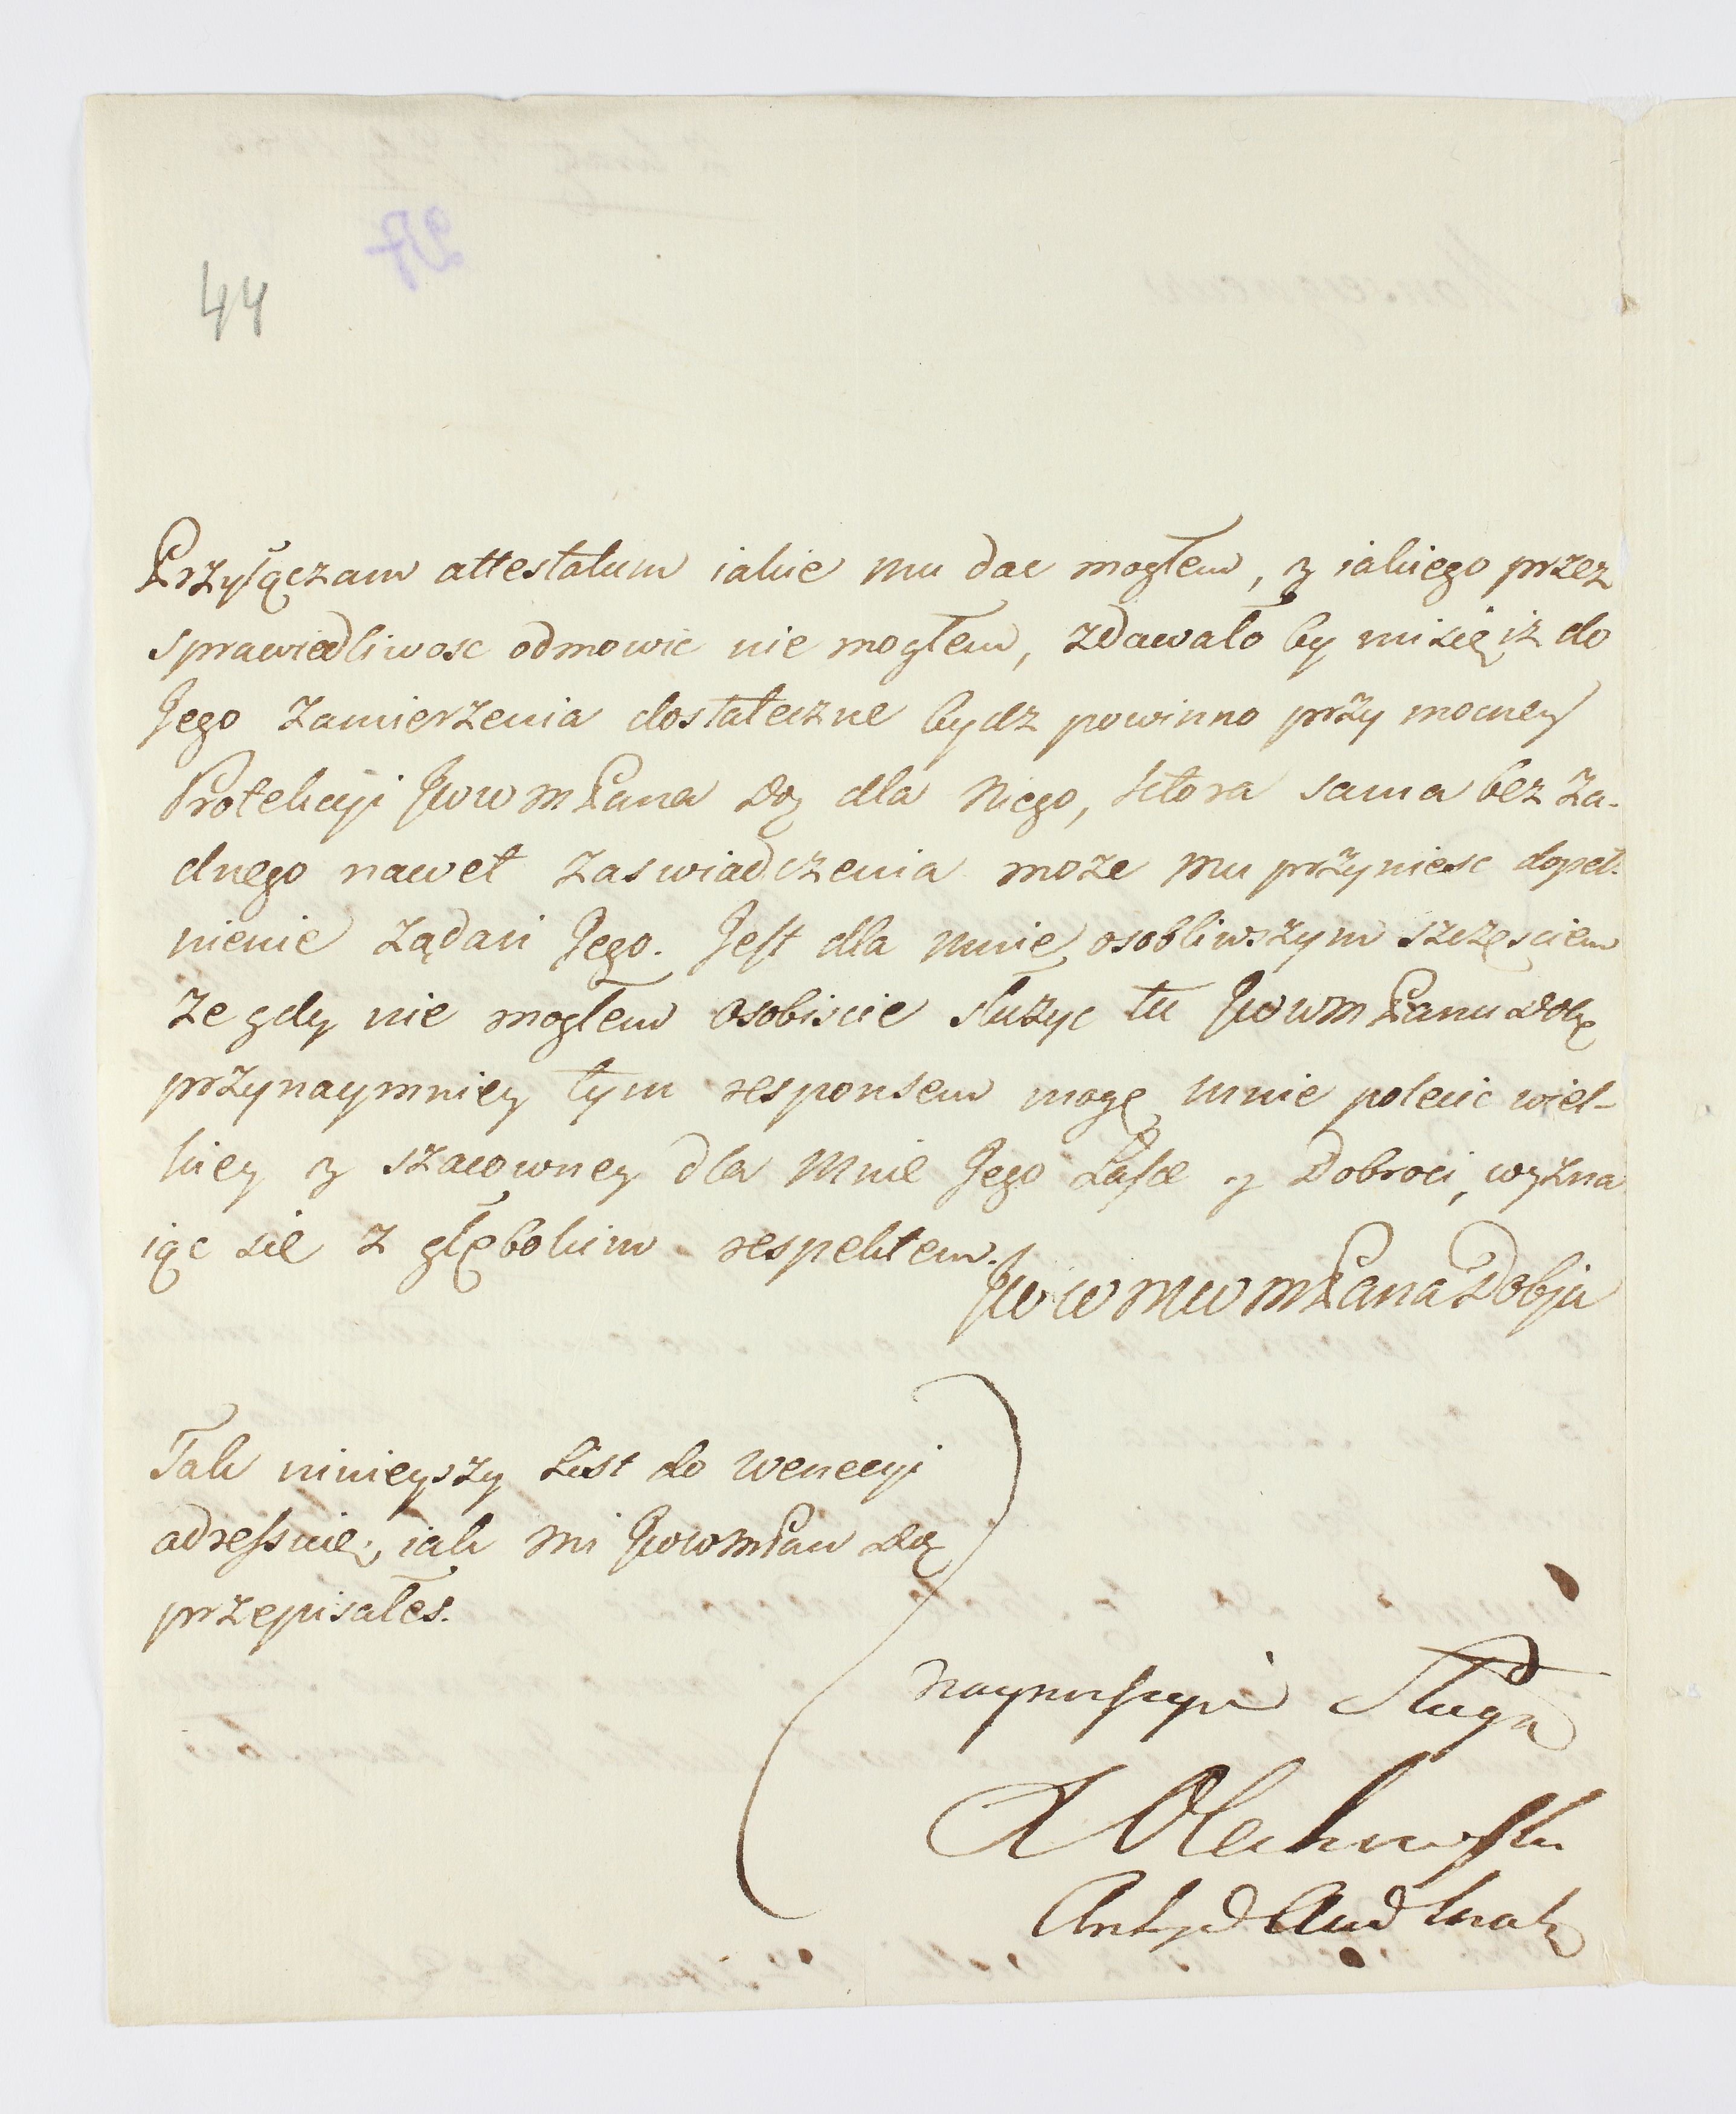 44
Przyłączam attestatum iakie mu dac mogłem, y iakiego przez
sprawiedliwosc odmowic nie mogłem, zdawało by mi się iż do
Jego zamierzenia dostateczne bydz powinno przy mocney
Protekcyi JWWMPana Dog dla Niego, ktora sama bez za-
dnego nawet zaswiadczenia moze mu przyniesc dopeł-
nienie ządań Jego. Jest dla mnie osobliwszym szczęsciem
ze gdy nie mogłem osobiscie służyc tu JWWMPanu
przynaymniey tym responsem mogę mnie polecic wiel-
kiey y szacowney dla Mnie Jego Łasce y Dobroci, wyzna
iąc sie z głębokim respektem.
JWWMWMPana Dobja
Tak ninieyszy List do Wenecyi
adressuię, iak mi JWWMPan
przepisałes.
naynizszym Sługą
Olechowski